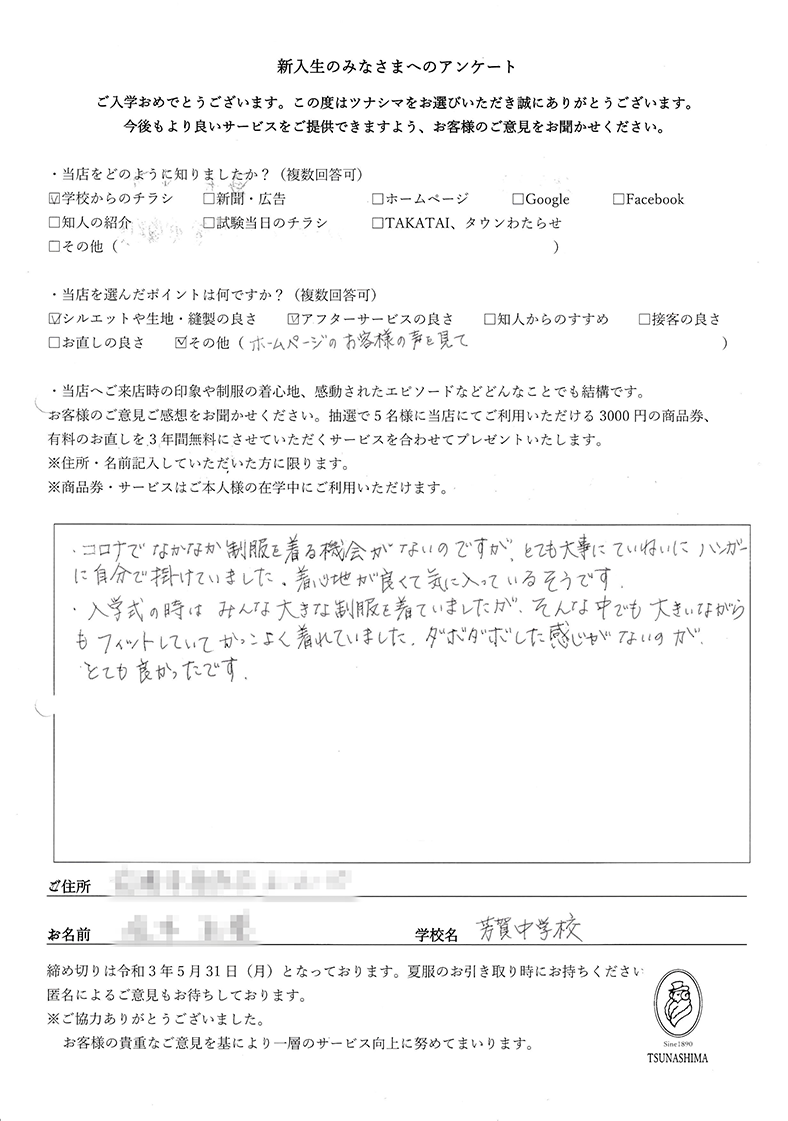 新入生のみなさまへのアンケート
ご入学おめでとうございます。この度はツナシマをお選びいただき誠にありがとうございます。
今後もより良いサービスをご提供できますよう、お客様のご意見をお聞かせください。
・当店をどのように知りましたか？（複数回答可）
☑学校からのチラシ　□新聞・広告　□ホームページ　□Google　□Facebook
□知人の紹介　□試験当日のチラシ　□TAKATAI、タウンわたらせ
□その他（　）
・当店を選んだポイントは何ですか？（複数回答可）
☑シルエットや生地・縫製の良さ　☑アフターサービスの良さ　□知人からのすすめ　□接客の良さ
□お直しの良さ　☑その他（ホームページのお客様の声を見て　）
・当店へご来店時の印象や制服の着心地、感動されたエピソードなどどんなことでも結構です。
お客様のご意見ご感想をお聞かせください。抽選で5名様に当店にてご利用いただける3000円の商品券、
有料のお直しを3年間無料にさせていただくサービスを合わせてプレゼントいたします。
※住所・名前記入していただいた方に限ります。
※商品券・サービスはご本人様の在学中にご利用いただけます。
・コロナでなかなか制服を着る機会がないのですが、とても大事にていねいにハンガー
に自分で掛けていました、着心地が良くて気に入っているそうです.
・入学式の時はみんな大きな制服を着ていましたが、そんな中でも大きいながら
もフィットしていてかっこよく着れていました。ダボダボした感じがないのが、
とても良かったです.
ご住所
お名前　学校名　芳賀中学校
締め切りは令和3年5月31日（月）となっております。夏服のお引き取り時にお持ちください
匿名によるご意見もお待ちしております。
※ご協力ありがとうございました。
お客様の貴重なご意見を基により一層のサービス向上に努めてまいります。
Sine1890
TSUNASHIMA